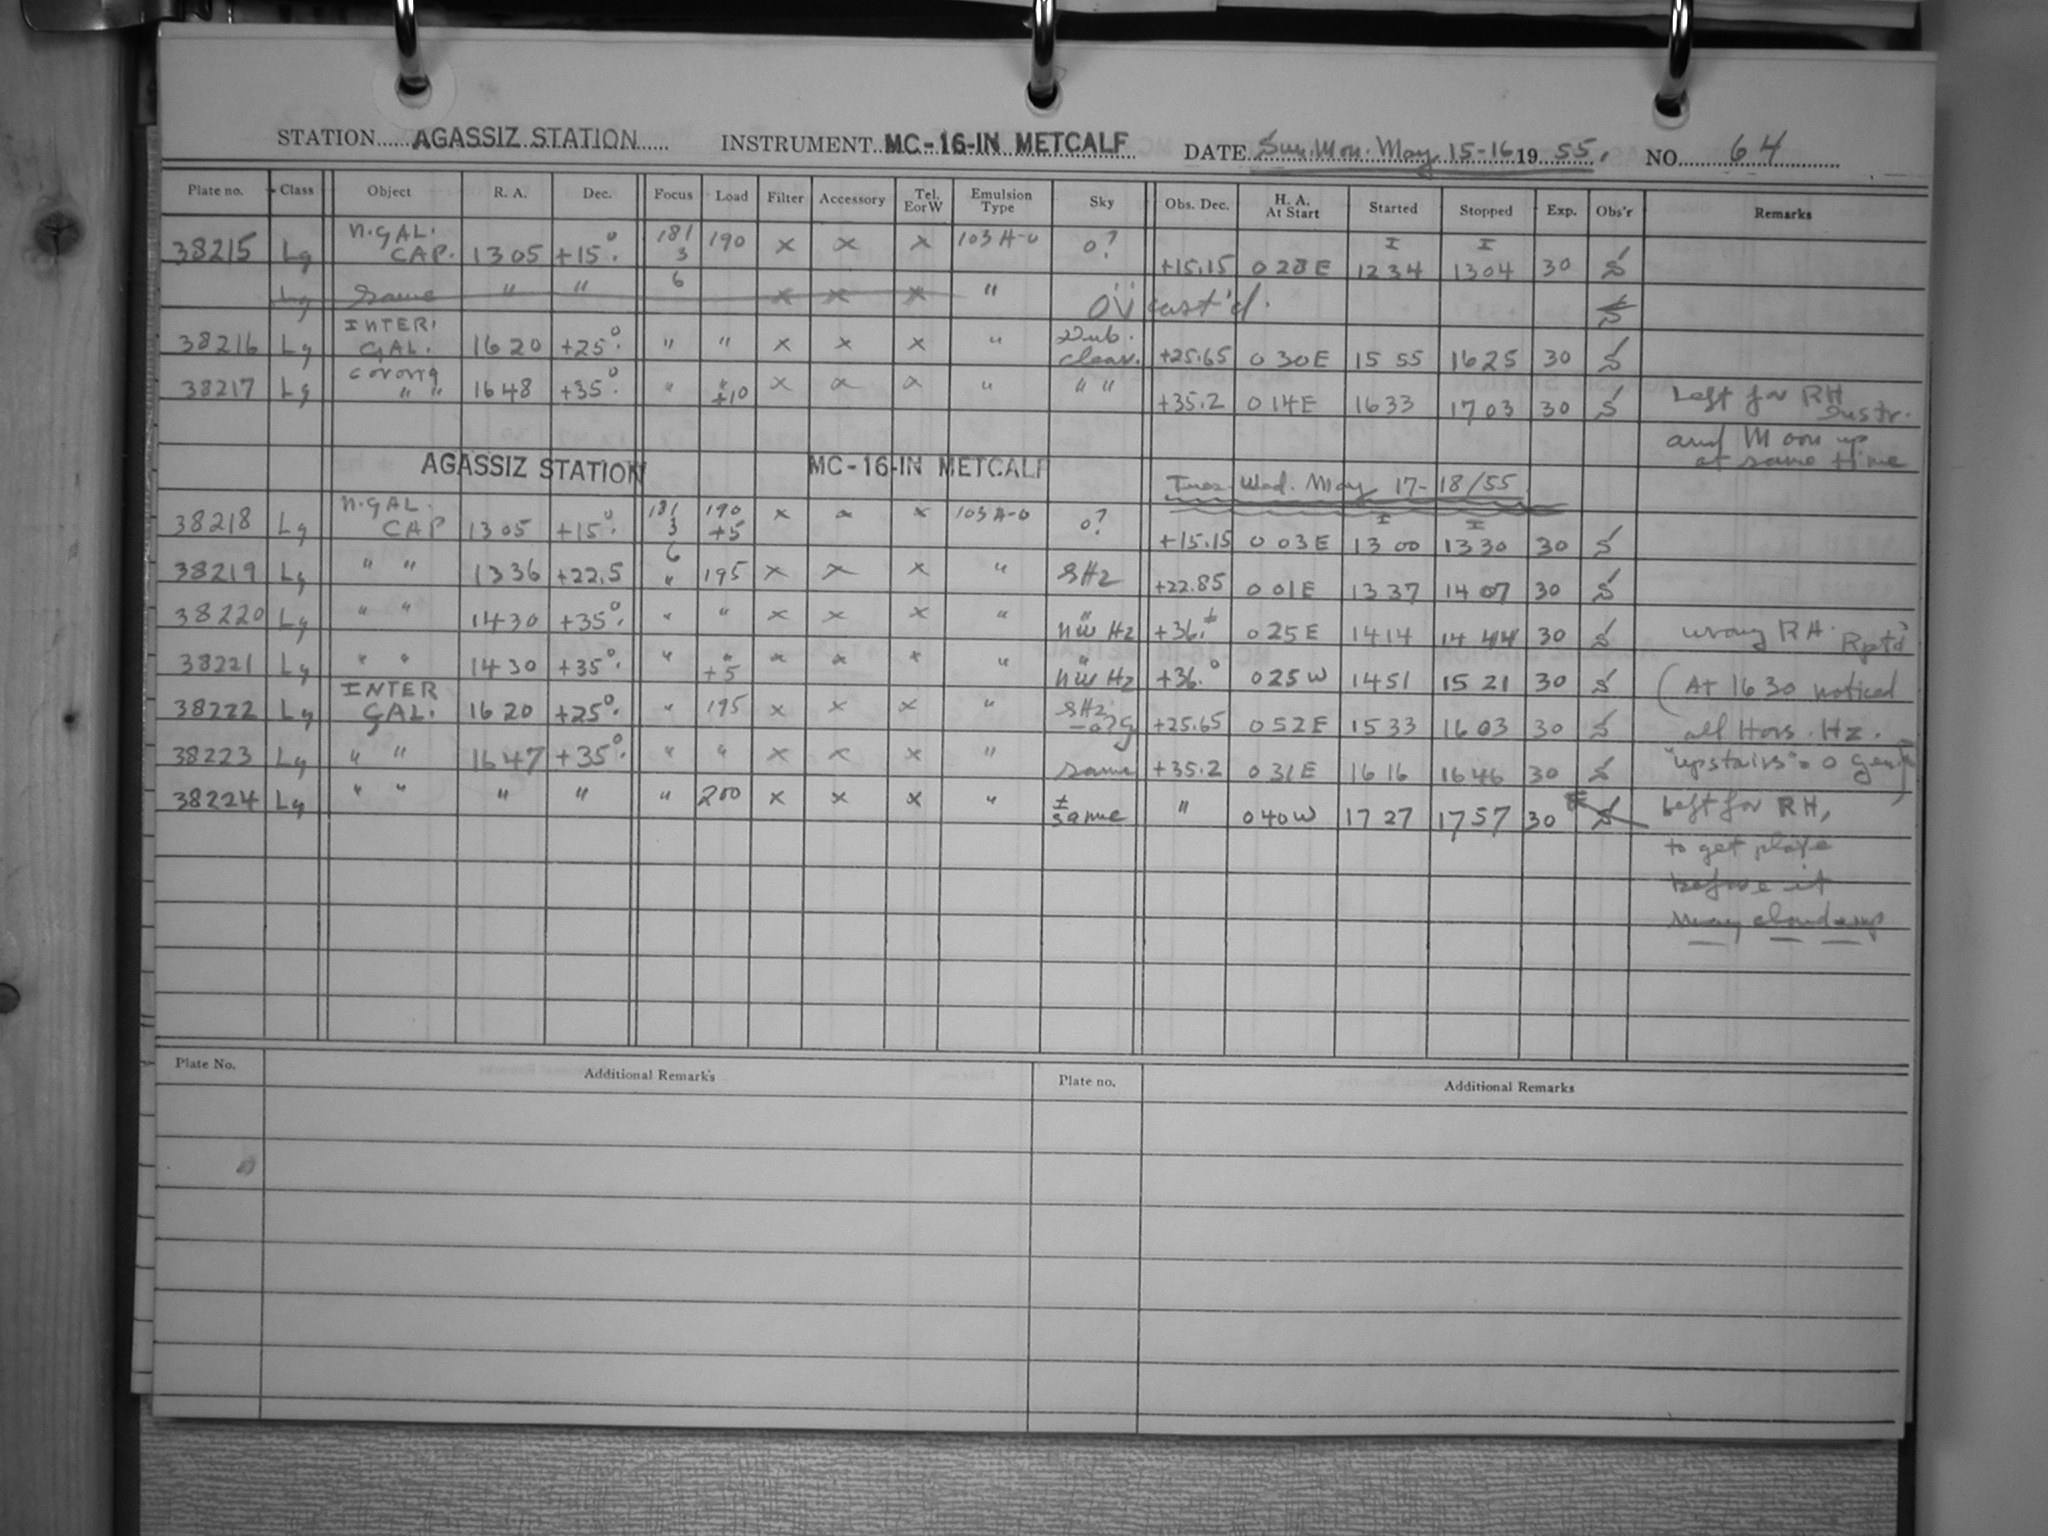 STATION AGASSIZ STATION INSTRUMENT MC-16-IN METCALF DATE Sun. Mon. May 15-16 19 55. NO. 64
Plate no. Class Object R. A. Dec. Focus Load Filter Accessory Tel. E or W Emulsion Type Sky Obs. Dec. H. A. At Start Started Stopped Exp. Obs'r Remarks
38215 Lg N.GAL. CAP. 1305 +15°. 181 3 190 x x x 103A-O 0? +15.15 0 28 E 1234 1304 30 S
Lg same " " 6 x x x " Ov cast'd. S
38216 Lg INTER. GAL. 1620 +25°. " " x x x " Dub. clear. +25.65 0 30E 15 55 1625 30 S
38217 Lg Corona " " 1648 +35°. " " +10 x x x " " " +35.2 0 14E 1633 1703 30 S Left for RH Instr.
and Moon up
at same time
AGASSIZ STATION MC-16-IN METCALF Tues. Wed. May 17-18/55
38218 Lg N.GAL. CAP 1305 +15°. 181 3 190 +5 x x x 103A-O 0? +15.15 0 03E 1300 1330 30 S
38219 Lg " " 1336 +22.5 6 " 195 x x x " SHz +22.85 0 01E 1337 1407 30 S
38220 Lg " " 1430 +35°. " " x x x " " NW Hz +36.± 0 25 E 1414 1444 30 S wrong RA. Rpt'd
38221 Lg " " 1430 +35°. " " +5 x x x " " NW Hz +36.° 0 25 W 1451 15 21 30 S (At 16 30 noticed
38222 Lg INTER GAL. 1620 +25°. " 195 x x x " SHz +25.65 0 52E 1533 1603 30 S all Hors. Hz.
38223 Lg " " 1647 +35°. " " x x x " same +35.2 0 31E 1616 1646 30 S "upstairs"
38224 Lg " " " " " 200 x x x " ± same " 0 40W 1727 1757 30 S Left for RH,
to get plate
before it
may cloud-up
Plate No. Additional Remarks Plate no. Additional Remarks